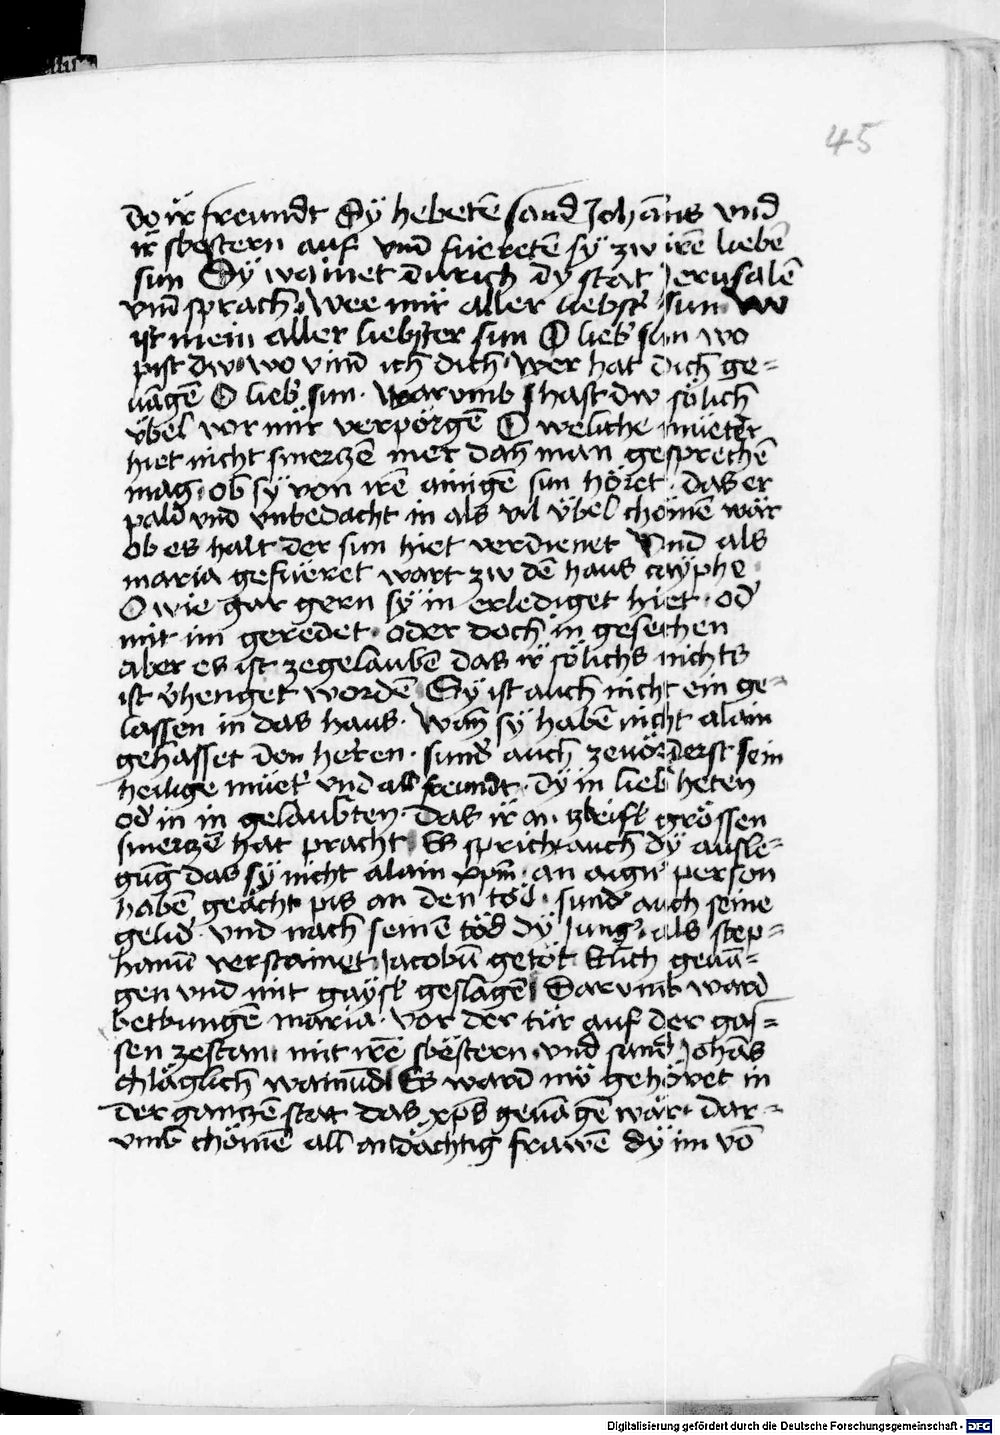 45
do ir freundt Sÿ hebetē sand Johās vnd
ir sbestern auf vnd fuēretē sÿ zw irē liebē
sun Sÿ wainet durich dy stat Jerusalē
vnd sprach wee mir aller liebster sun wo
ist mein aller liebster sun O lieb sun wo
pist dw wo vind ich dich wer hat dich ge-
uāgē O lieb sun warumb hastdw sölich
übel vor mir verpörgē O weliche mueter
hiet nicht smerczē mer dan man gesprechē
mag ob sÿ von irē ainigē sun höret das er
pald vnd vnbedacht in als vil übel chömē wär
ob es halt der sun hiet verdienet Vnd als
maria gefüeret wart zw dē haus cayphe
O wie gar gern sÿ in erlediget hiet od
mit im geredet oder doch in gesechen
aber es ist zegelaubē das ir sölichs nichts
ist vhenget wordē Sÿ ist auch nicht ein ge-
lassen in das haus wan sÿ habē nicht alain
gehasset den herren sund auch zeuörderst sein
heilige müet vnd all freundt dÿ in lieb heten
od in in gelaubten das ir an zbeifl grössen
smerczē hat pracht Es spricht auch dÿ ausle-
gūg das sÿ nicht alain xpm an aigner person
habē geächt pis an den tod sund auch seine
gelid vnd nach seinē töd dÿ Jung als step-
hanū verstainet Jacobū getöt Etlich geuā-
gen vnd mit gaysl geslagē Darumb ward
betbungē maria vor der tür auf der gas-
sen zestan mit irē sbëstern vnd sand Johās
chläglich wainūd Es ward nw gehöret in
der ganczē stat das xps geuāgē wär dar-
vmb chömē all andächtig frawē dÿ im vō
Digitalisierung gefördert durch die Deutsche Forschungsgemeinschaft - DFG